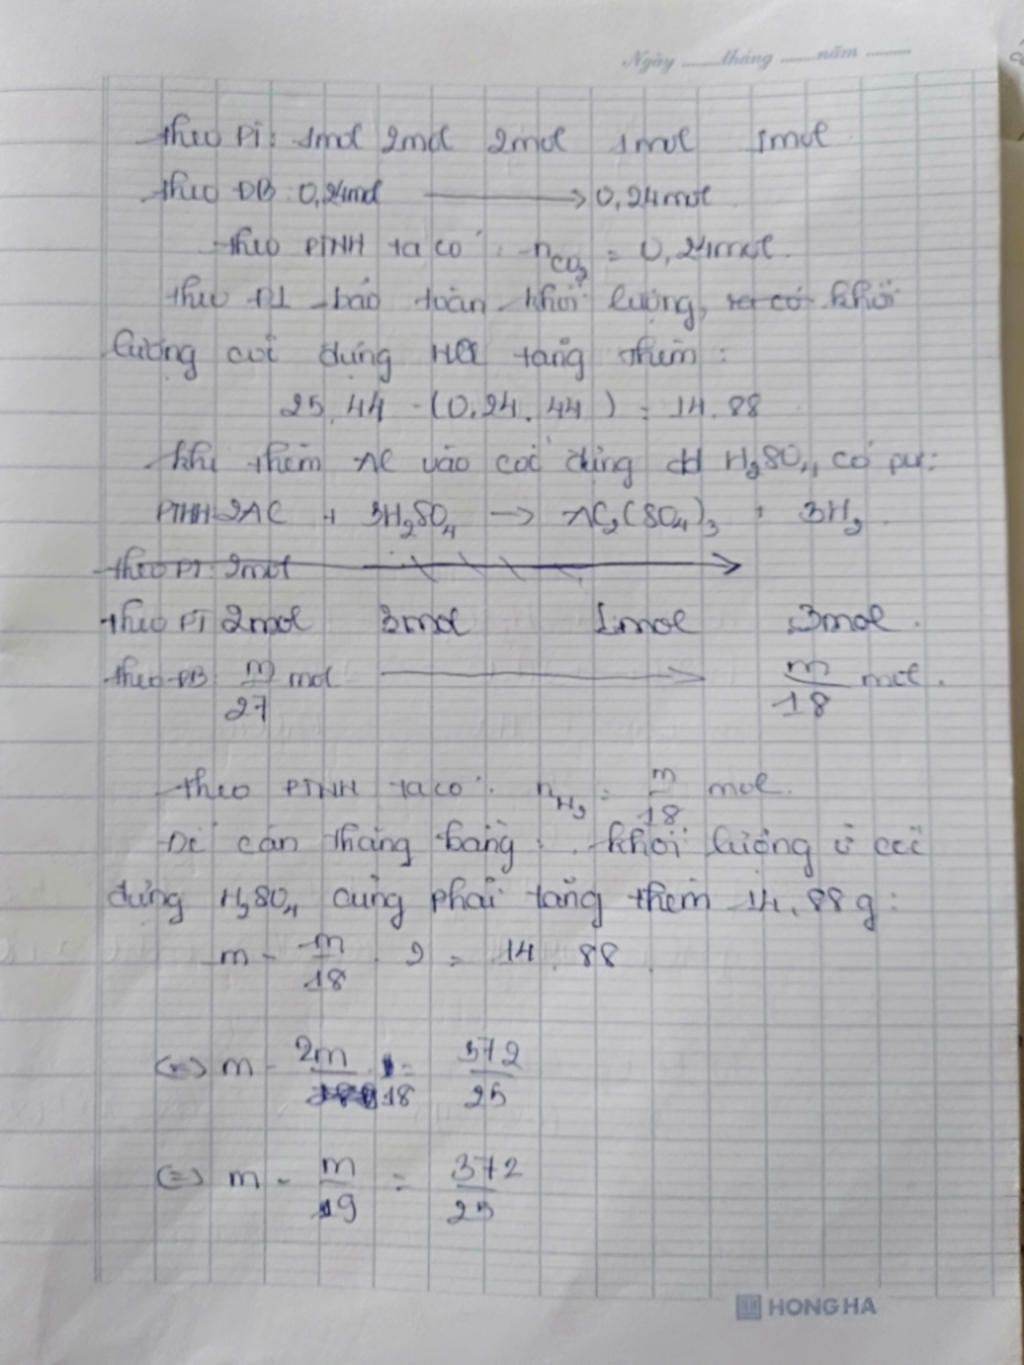 Ngày ......tháng ......năm ......
Theo PT: 1mol 2mol 2mol 1mol 1mol
Theo ĐB: 0,24mol → 0,24mol
Theo PTHH ta có: nCO₂ = 0,24mol.
Theo ĐL bảo toàn khối lượng, ta có khối
lượng cốc đựng HCl tăng thêm:
25,44 - (0,24.44) = 14,88
khi thêm Al vào cốc đựng dd H₂SO₄ có pư:
PTHH: 2Al + 3H₂SO₄ → Al₂(SO₄)₃ + 3H₂
Theo PT: 2mol
Theo PT 2mol 3mol 1mol 3mol.
Theo ĐB m/27 mol → m/18 mol.
Theo PTHH ta có: nH₂ = m/18 mol.
Để cân thăng bằng. khối lượng ở cốc
đựng H₂SO₄ cũng phải tăng thêm 14,88g:
m - m/18 . 2 = 14,88
(=) m - 2m/18 = 372/25
(=) m - m/9 = 372/25
HONG HA